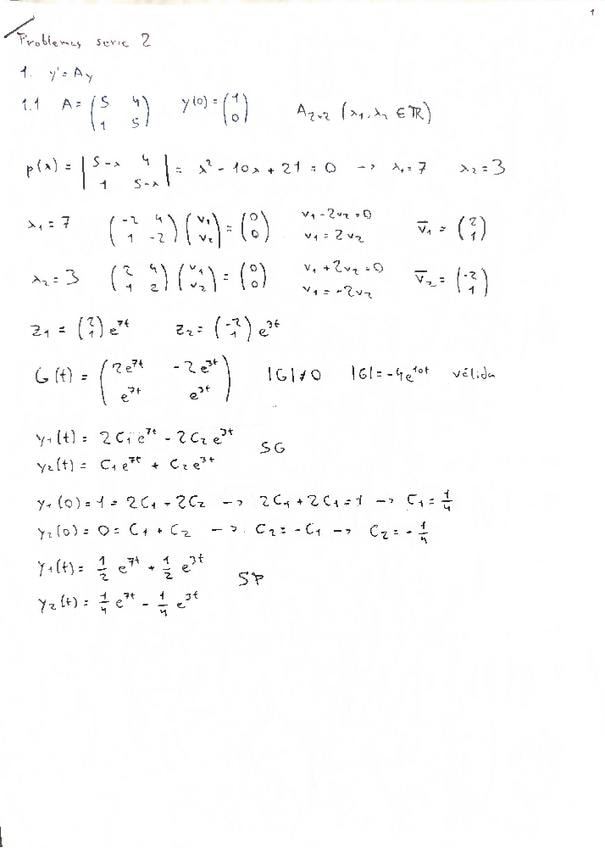 1
Problemas serie 2
1. y' = Ay
1.1 A = (5 4; 1 5) y(0) = (1; 0) A₂ₓ₂ (λ₁, λ₂ ∈ ℝ)
p(λ) = |5-λ 4; 1 5-λ| = λ² - 10λ + 21 = 0 → λ₁ = 7 λ₂ = 3
λ₁ = 7 (-2 4; 1 -2)(v₁; v₂) = (0; 0) v₁ - 2v₂ = 0 v₁ = 2v₂ v̄₁ = (2; 1)
λ₂ = 3 (2 4; 1 2)(v₁; v₂) = (0; 0) v₁ + 2v₂ = 0 v₁ = -2v₂ v̄₂ = (-2; 1)
z₁ = (2; 1) e^7t z₂ = (-2; 1) e^3t
G(t) = (2e^7t -2e^3t; e^7t e^3t) |G| ≠ 0 |G| = -4e^10t válida
y₁(t) = 2C₁e^7t - 2C₂e^3t
SG
y₂(t) = C₁e^7t + C₂e^3t
y₁(0) = 1 = 2C₁ - 2C₂ → 2C₁ + 2C₁ = 1 → C₁ = 1/4
y₂(0) = 0 = C₁ + C₂ → C₂ = -C₁ → C₂ = -1/4
y₁(t) = 1/2 e^7t + 1/2 e^3t
SP
y₂(t) = 1/4 e^7t - 1/4 e^3t